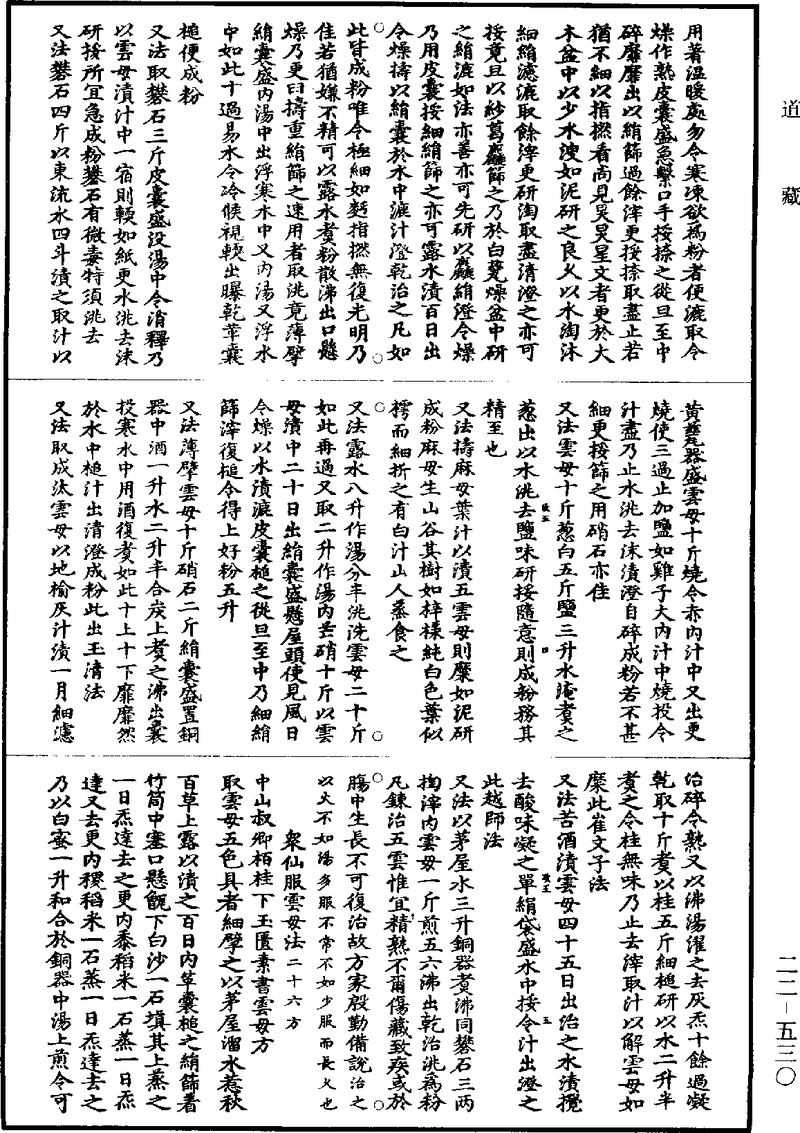 道藏
用著溫暖處勿令寒凍欲為粉者便漉取令
燥作熟皮囊盛急繫口手挼捺之從旦至中
碎靡靡出以絹篩過餘滓更挼捺取盡止若
猶不細以指撚看尚見炅炅星文者更於大
木盆中以少水溲如泥研之良久以水淘沐
細絹濾漉取餘滓更研淘取盡清澄之亦可
挼竟且以紗葛麤篩之乃於白甆燥盆中研
之絹漉如法亦善亦可先研以麤絹澄令燥
乃用皮囊挼細絹篩之亦可露水漬百日出
令燥擣以絹囊於水中漉汁澄乾治之凡如
此皆成粉唯令極細如麪指撚無復光明乃
佳若猶嫌不精可以露水煑粉散沸出口懸
燥乃更臼擣重絹篩之速用者取洮竟薄擘
絹囊盛內湯中出浮寒水中又內湯又浮水
中如此十過易水令冷候視輭出曝乾葦囊
槌便成粉
又法取礬石三斤皮囊盛沒湯中令消釋乃
以雲母漬汁中一宿則輭如紙更水洮去沫
研挼所宜急成粉礬石有微毒特須洮去
又法礬石四斤以東流水四斗漬之取汁以
黃甆器盛雲母十斤燒令赤內汁中又出更
燒使三過止加鹽如雞子大內汁中燒投令
汁盡乃止水洮去沫漬澄自碎成粉若不甚
細更挼篩之用硝石亦佳
又法雲母十斤蔥白五斤鹽三升水淹煑之
蔥出以水洮去鹽味研挼隨意則成粉務其
精至也
又法擣麻母葉汁以漬五雲母則糜如泥研
成粉麻母生山谷其樹如梓樣純白色葉似
樗而細折之有白汁山人蒸食之
又法露水八升作湯分半洮洗雲母二十斤
如此再過又取二升作湯內芒硝十斤以雲
母漬中二十日出絹囊盛懸屋頭使見風日
令燥以水漬漉皮囊槌之從旦至中乃細絹
篩滓復槌令得上好粉五升
又法薄擘雲母十斤硝石二斤絹囊盛置銅
器中酒一升水二升半合炭上煑之沸出囊
投寒水中用酒復煑如此十上十下靡靡然
於水中槌汁出清澄成粉此出玉清法
又法取成汰雲母以地榆灰汁漬一月細濾
治碎令熟又以沸湯濯之去灰炁十餘過凝
乾取十斤煑以桂五斤細槌研以水二升半
煑之令桂無味乃止去滓取汁以解雲母如
糜此崔文子法
又法苦酒漬雲母四十五日出治之水漬攪
去酸味凝之單絹袋盛水中挼令汁出澄之
此越師法
又法以茅屋水三升銅器煑沸同礬石三兩
掏滓內雲母一斤煎五六沸出乾治洮為粉
凡鍊治五雲惟宜精熟不爾傷藏致疾或於
腸中生長不可復治故方家殷勤備說治之
以火不如湯多服不常不如少服而長久也
衆仙服雲母法二十六方
中山叔卿栢桂下玉匱素書雲母方
取雲母五色具者細擘之以茅屋溜水惹秋
百草上露以漬之百日內草囊槌之絹篩着
竹筒中塞口懸甑下白沙一石填其上蒸之
一日炁達去之更內黍稻米一石蒸一日炁
達又去更內稷稻米一石蒸一日炁達去之
乃以白蜜一升和合於銅器中湯上煎令可
二二－五三〇